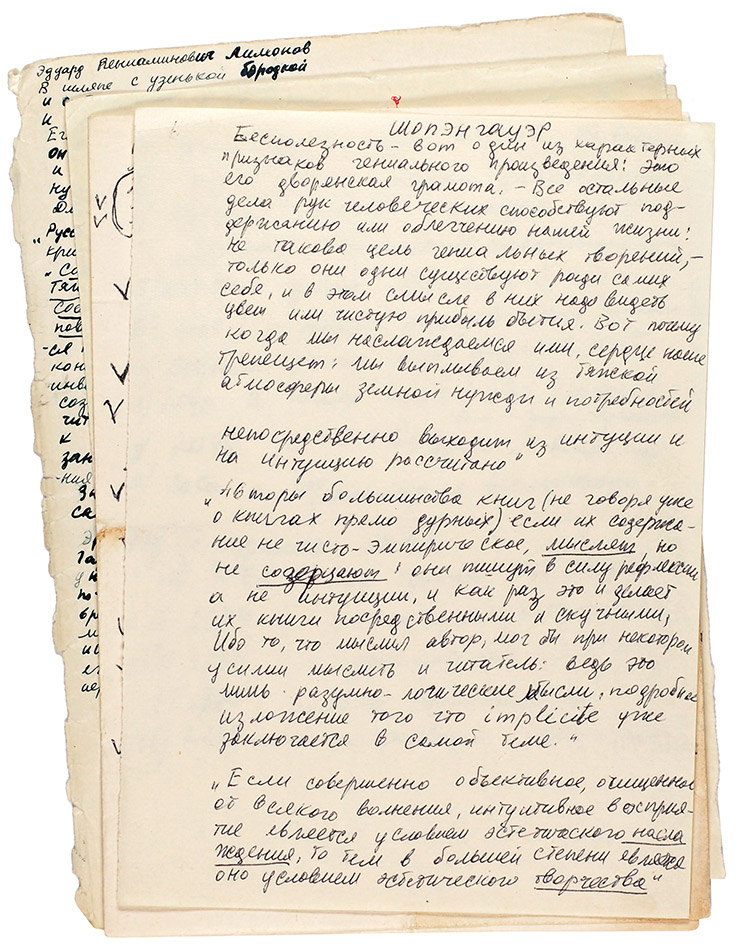 Эдуард Вениаминович Лимонов
В шляпе с узенькой бородкой
и
и
Ег
он
и
ну
Дл
„Русс
кри
„Со
Тан
Соо
пов
-ся
кон
инве
соз
чит
к
зан
-ния
За
са
Эр
Га
ун
по
вр
м
ил
ег
пер
ШОПЭНГАУЭР
Бесполезность - вот один из характерных
признаков гениального произведения: Это
его дворянская грамота. - Все остальные
дела рук человеческих способствуют под-
держанию или облегчению нашей жизни:
не такова цель гениальных творений, -
только они одни существуют ради самих
себе, и в этом смысле в них надо видеть
цвет или чистую прибыль бытия. Вот почему
когда мы наслаждаемся ими, сердце наше
трепещет: мы выплываем из тяжской
атмосферы земной нужды и потребностей
непосредственно выходит из интуиции и
на интуицию рассчитано"
„Авторы большинства книг (не говоря уже
о книгах прямо дурных) если их содержа-
ние не чисто-эмпирическое, мыслят, но
не созерцают: они пишут в силу рефлексии
а не интуиции, и как раз это и делает
их книги посредственными и скучными,
Ибо то, что мыслил автор, мог бы при некотором
усилии мыслить и читатель: ведь это
лишь разумно-логические мысли, подробное
изложение того что implicite уже
заключается в самой теме."
„Если совершенно объективное, очищенное
от всякого волнения, интуитивное восприя-
тие является условием эстетического насла
ждения, то тем в большей степени является
оно условием эстетического творчества"